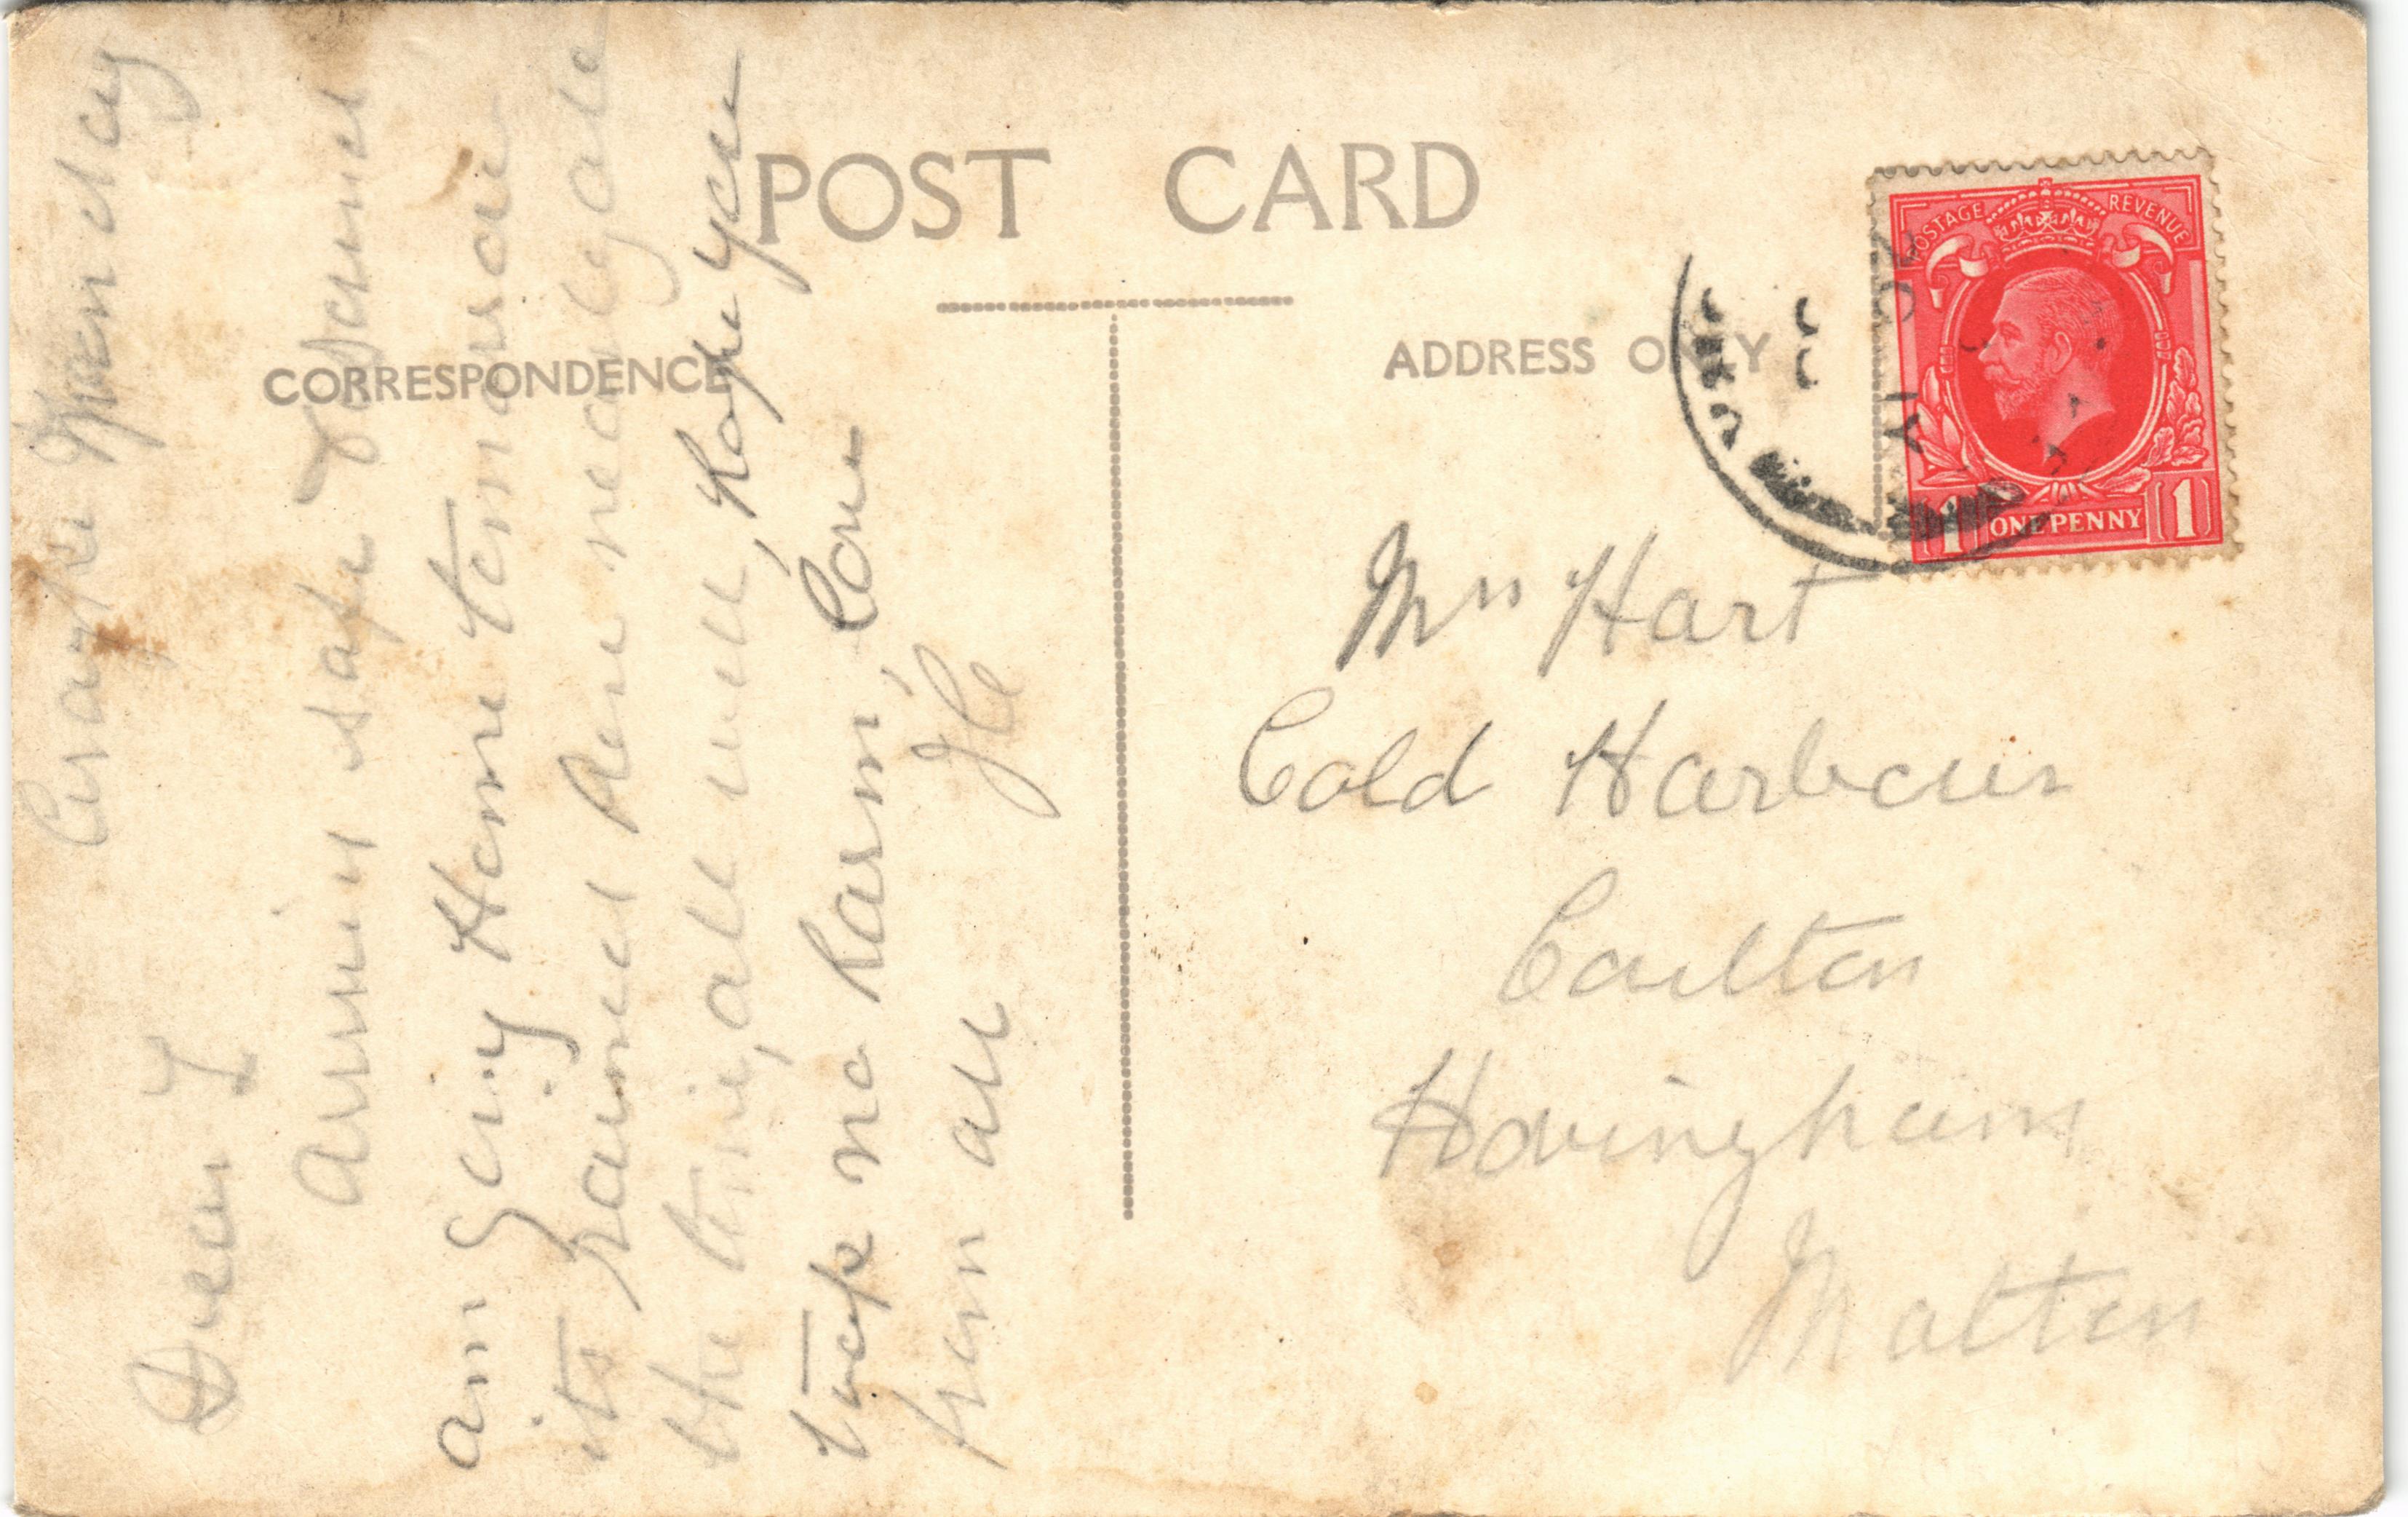 POST CARD
CORRESPONDENCE
ADDRESS ONLY
POSTAGE REVENUE
1 ONE PENNY 1
Crayke Monday
Dear
Arrived safe & sound
am going Home tomorrow
its rained here nearly all
the time, all well, hope you
took no harm, love
from all
Mrs Hart
Cold Harbour
Coulton
Hovingham
Malton